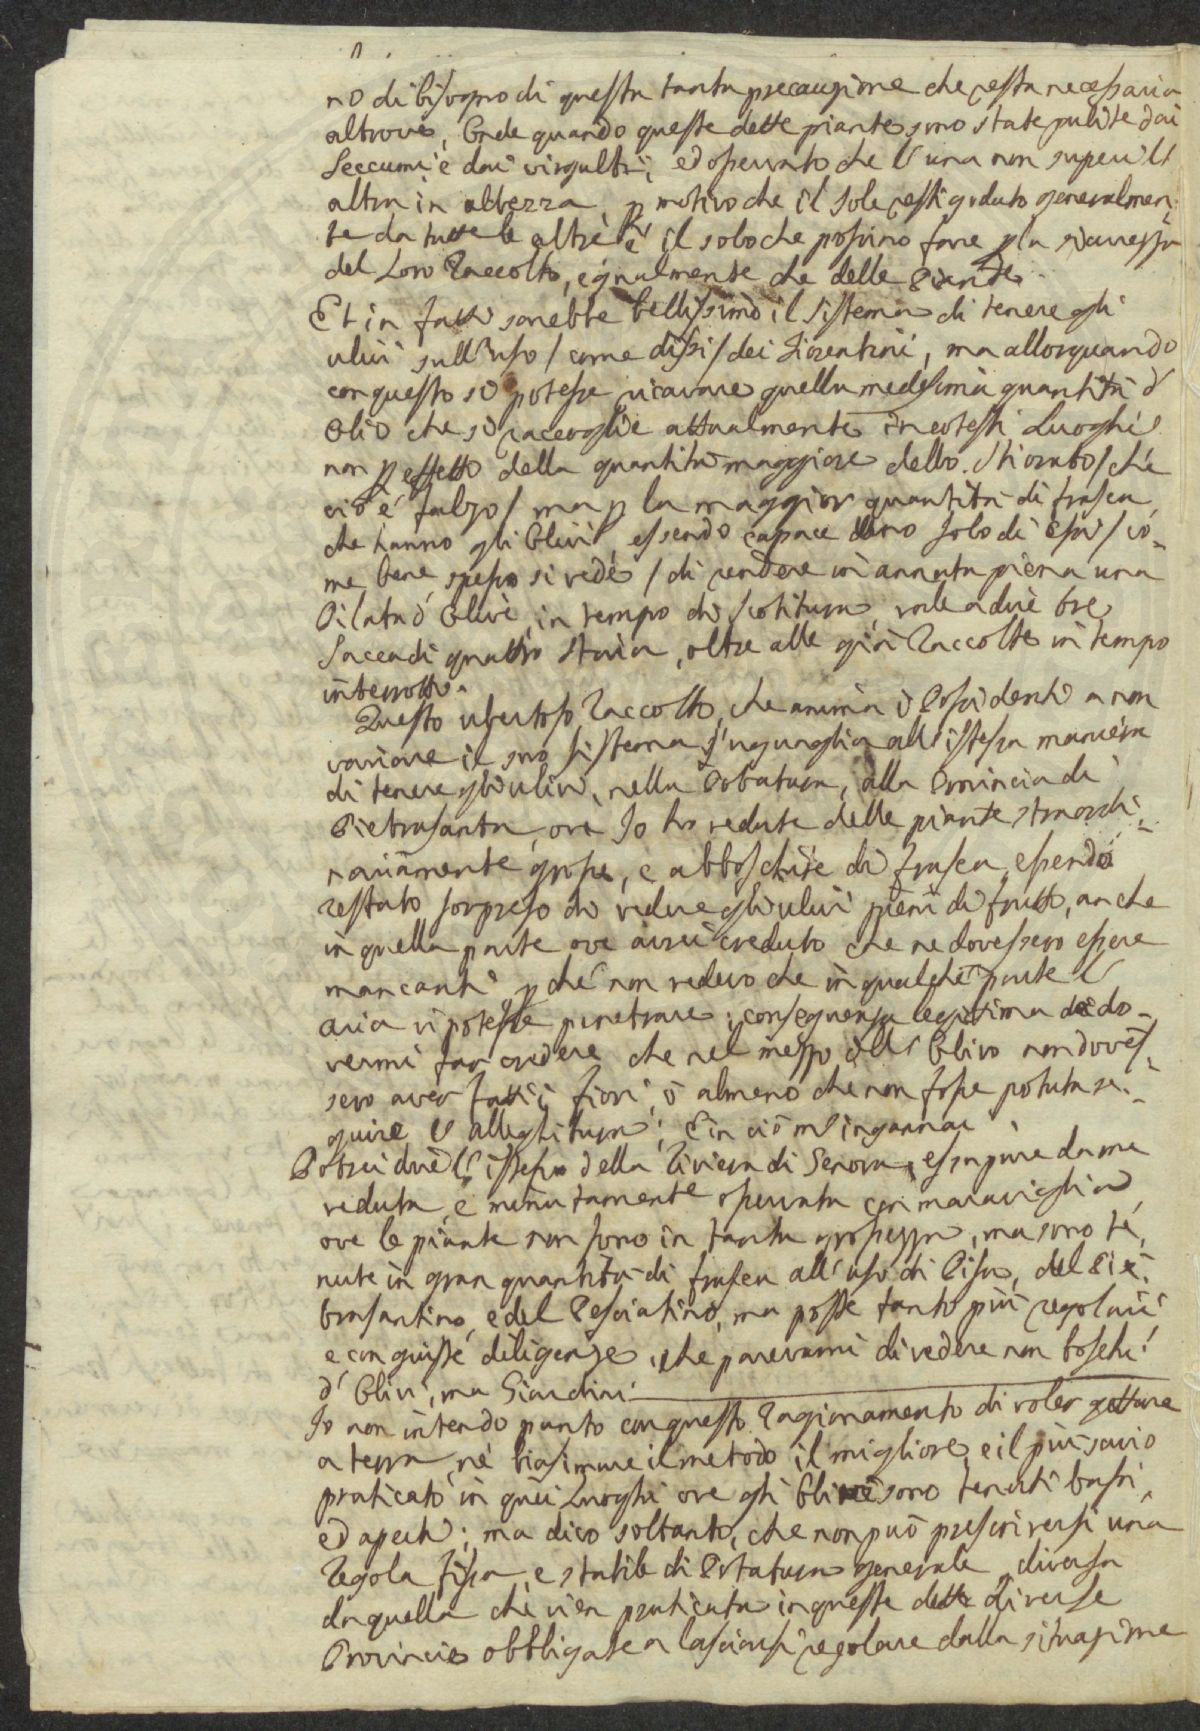 no di bisogno di questa tanta precauzione che resta necessaria
altrove, Onde quando queste dette piante sono state pulite dai
Seccumi e dai virgulti, ed osservato che l'una non superi l'
altra in altezza p motivo che il Sole resti goduto generalmen-
te da tutte le altre è il solo che possino fare p la sicurezza
del Loro Raccolto, egualmente che delle Piante
Et in fatti sarebbe bellissimo il Sistema di tenere gli
ulivi sull'uso / come dissi / dei Fiorentini, ma allorquando
con questo si potesse ricavare quella medesima quantità d'
Olio che si raccoglie attualmente in cotesti Luoghi
non p effetto della quantità maggiore dello / che
ciò è falzo / ma p la maggior quantità di frasca
che hanno gli Olivi essendo capace uno solo di Essi / co-
me bene spesso si vede / di rendere in annata piena una
Pilata d'Olive in tempo di, vale a dire tre
Sacca di quattro Staia, oltre alle già Raccolte in tempo
interrotto.
Questo ubertoso Raccolto, che anima i Possidenti a non
variare il suo sistema s'uguaglia all'istessa maniera
di tenere gli ulivi, nella Potatura, alla Provincia di
Pietrasanta, ove Io ho vedute delle piante straordi-
nariamente grosse, e abboschite di frasca, essendo
restato sorpreso di vedere gli ulivi pieni di frutto, anche
in quella parte ove avrei creduto che ne dovessero essere
mancanti p chè non vedevo che in qualche parte l'
aria vi potesse penetrare; conseguenza legittima da do-
vermi far credere che nel mezzo all'Olivo non doves-
sero aver fatti i fiori, ò almeno che non fosse potuta se-
guire l'allegatura; E in ciò m'ingannai
Potrei dire l'istesso della Riviera di Genova, essa pure da me
veduta, e minutamente osservata con maraviglia,
ove le piante non sono in tanta grossezza, ma sono te-
nute in gran quantità di frasca all'uso di Pisa, del Pie-
trasantino, e del Pesciatino, ma poste tanto più regolari
e con giuste diligenze, che parevami di vedere non boschi
d'Olivi, ma Giardini
Io non intendo punto con questo Ragionamento di voler gettare
a terra, nè biasimare il metodo il migliore, e il più savio
praticato in quei Luoghi ove gli Olivi sono tenuti bassi,
ed aperti; ma dico soltanto, che non può prescriversi una
Regola fissa, e stabile di Potatura generale diversa
da quella che vien praticata in queste dette diverse
Provincie obbligate a lasciarsi regolare dalla situazione